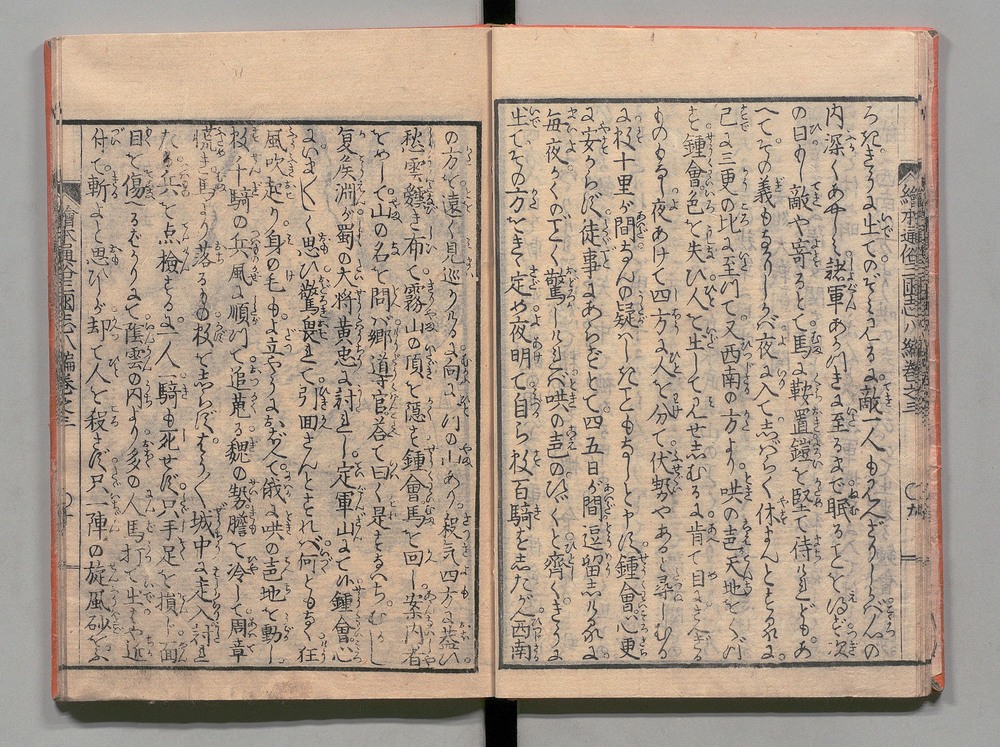 内深くありし諸軍あかつきに至るまで眠ることを得ず次
の日もし敵や寄ると馬に鞍置鎧を堅て侍けれどもあ
へてその義もなかりしかバ夜に入て志バらく休まんとする処に
已に三更の比に至て又西南の方より哄の声天地をくづ
せ鍾會色を失ひ人を出して見せ志むるに肯て目にさえぎる
ものもなし夜あけて四方に人を分て伏勢やあると尋しむる
に数十里が間なんの疑ハしきこともなしと申にぞ鍾會心更
に安からバず徒事にあらずとて四五日が間逗留志ける処に
毎夜かくのごとく驚しけれバ哄の声のひゞくと齊くきほひ
出てその方をきゝ定め夜明て自ら数百騎を志たがへ西南
の方を遠く見巡りけるに向に一つの山あり殺氣四方に蓋ひ
愁雲〻きに布て霧山の頂を隠せり鍾會馬を回し案内者
をめして山の名を問バ郷導官荅て曰く是すなハちむかし
夏侯淵が蜀の大将黄忠に討れし定軍山にて候鍾會心
にいまハしく思ひ驚畏れて引回さんとすれバ何ともなく狂
風吹起り身の毛も立やうにおぼえて俄に哄の声地を動し
数千騎の兵風に順て追蒐る魏の勢膽を冷して周章
荒き馬より落るもの数を志らずやう〳〵城中に走入討れ
たる兵を点檢するに一人一騎も死せず只手足を損し面
目を傷るばかりにて陰雲の内より多の人馬打て出すでに近
付て斬よと思ひしが却て人を殺さず只一陣の旋風砂をふ
繪本通俗三國志八編巻之三
九
繪本通俗三國志八編巻之三
十